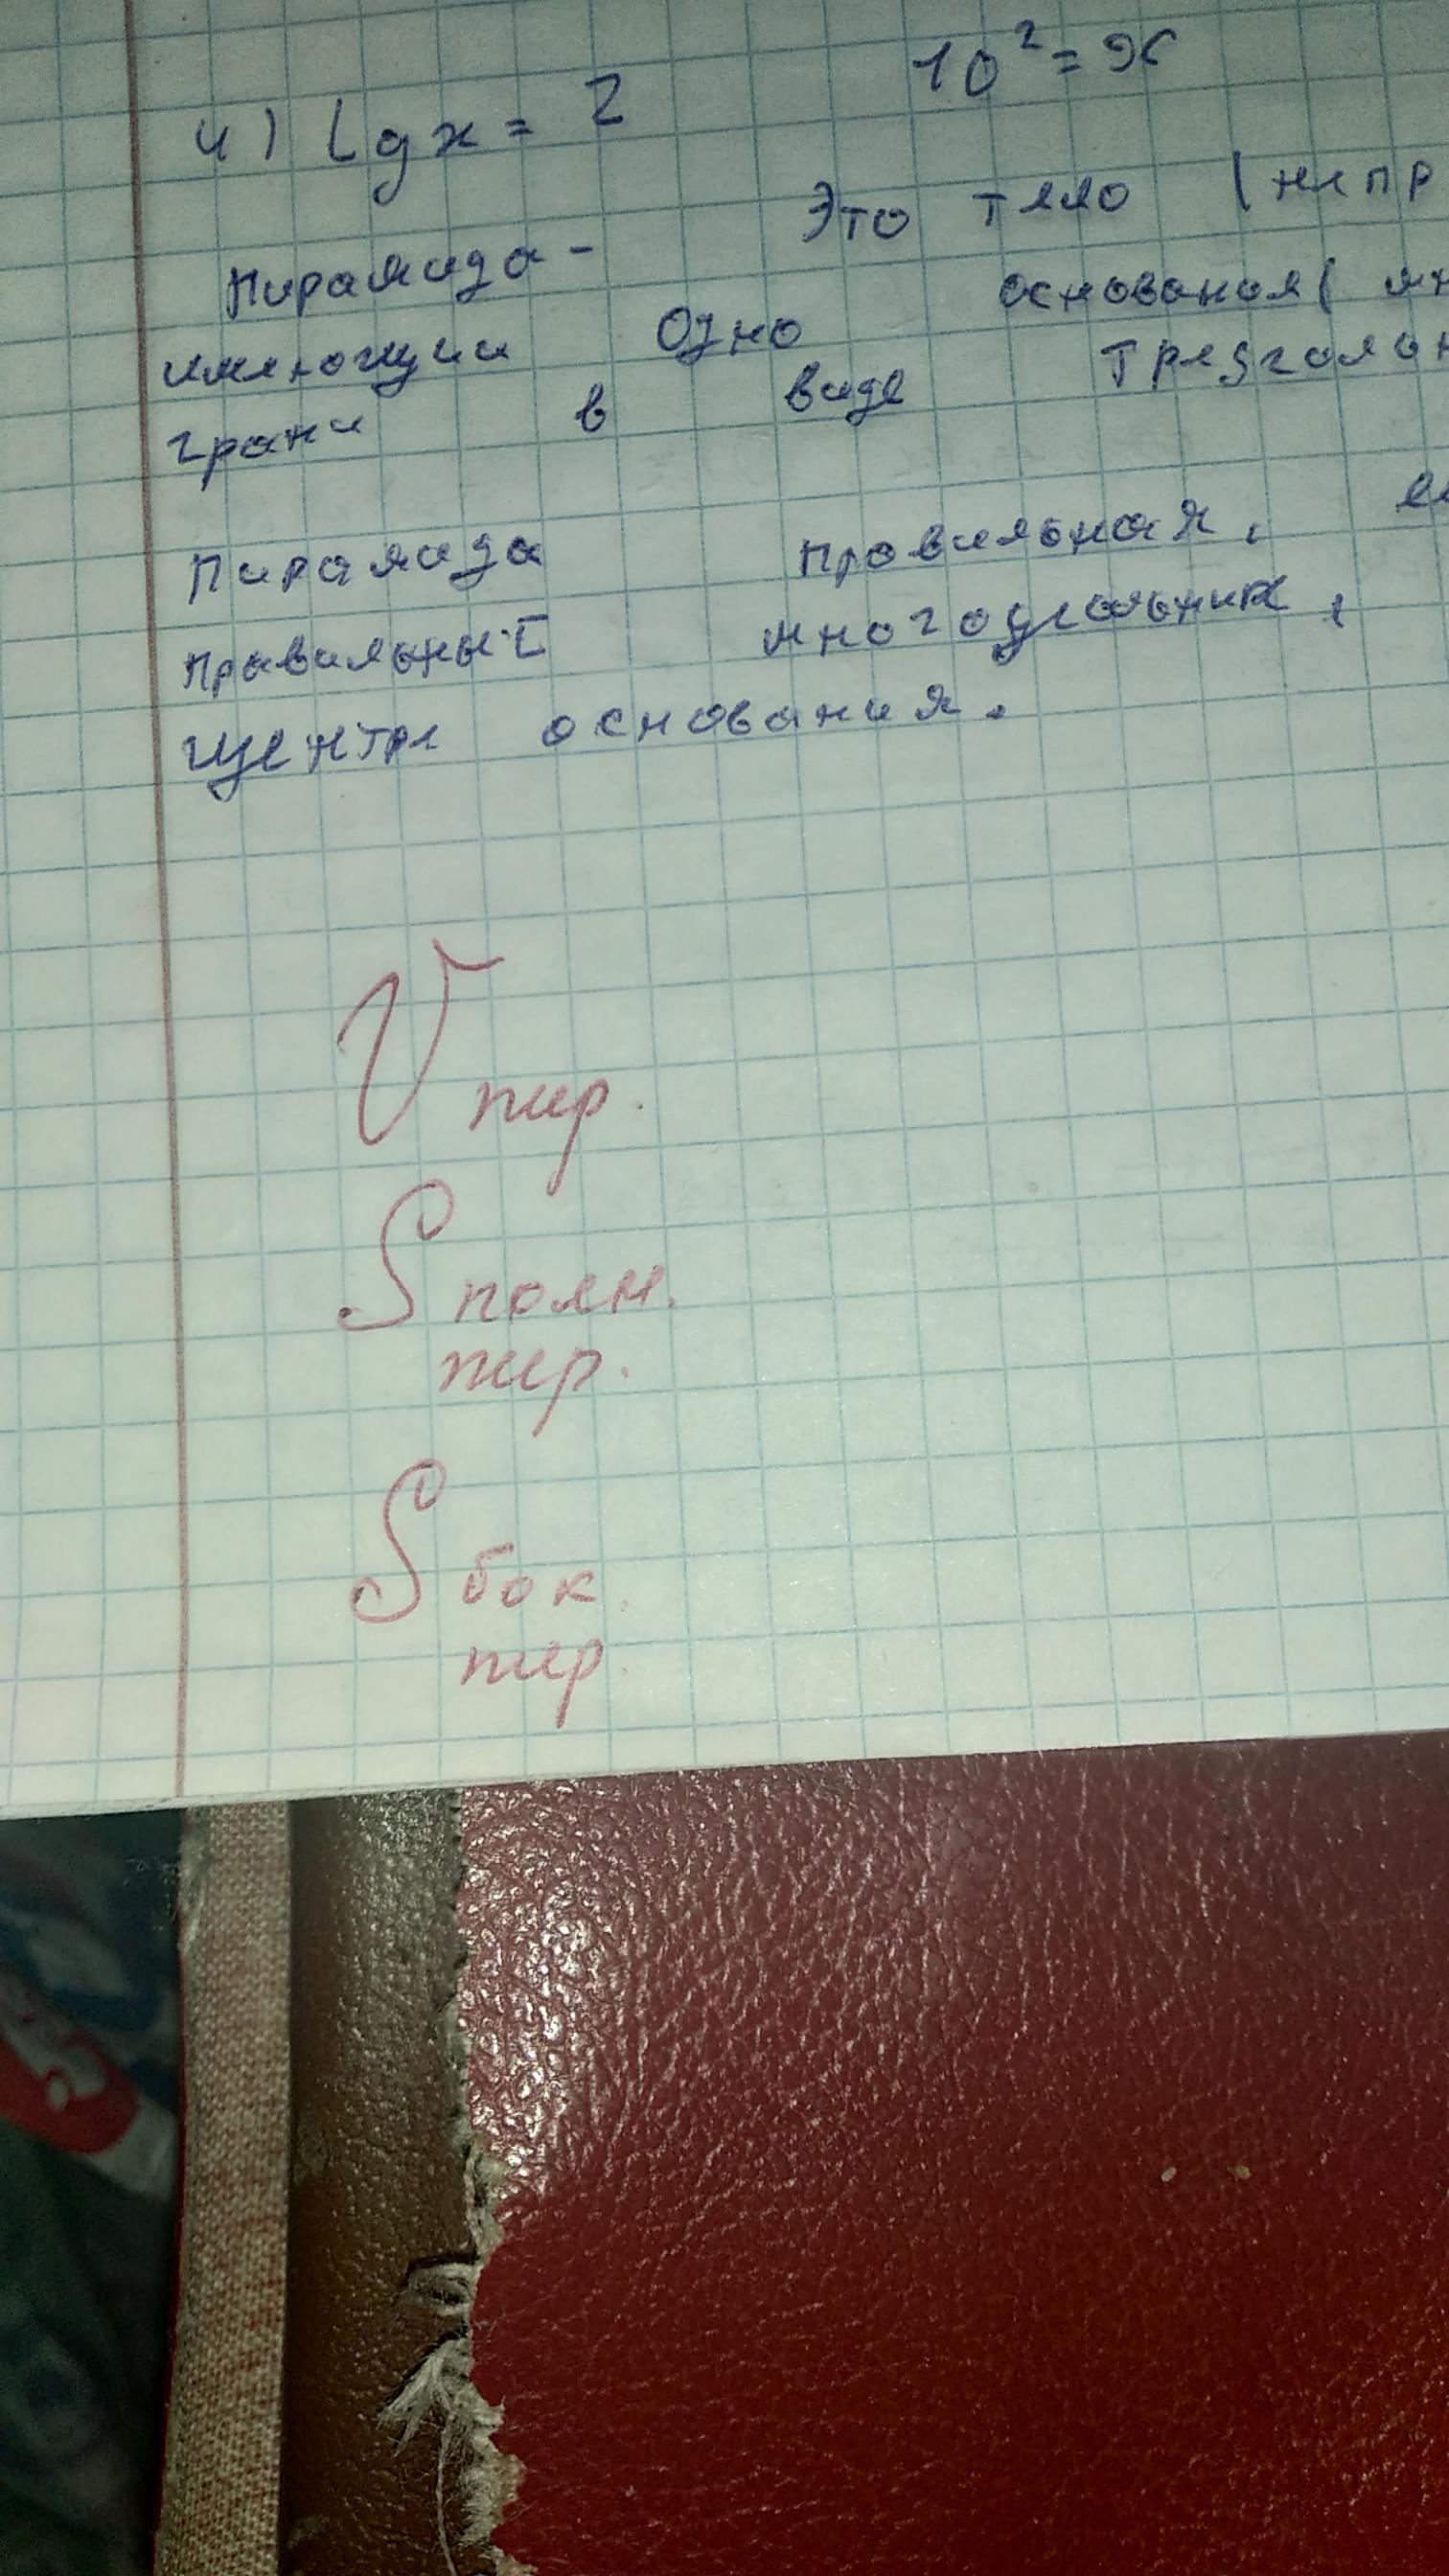 4) lg x = 2 10² = x
Пирамида - Это тело (непр
имеющии одно основания( мн
грани в виде треугольн
Пирамида правильная, е
правильный многоугольник,
центре основания.
V пир.
S полн.
пир.
S бок.
пир.